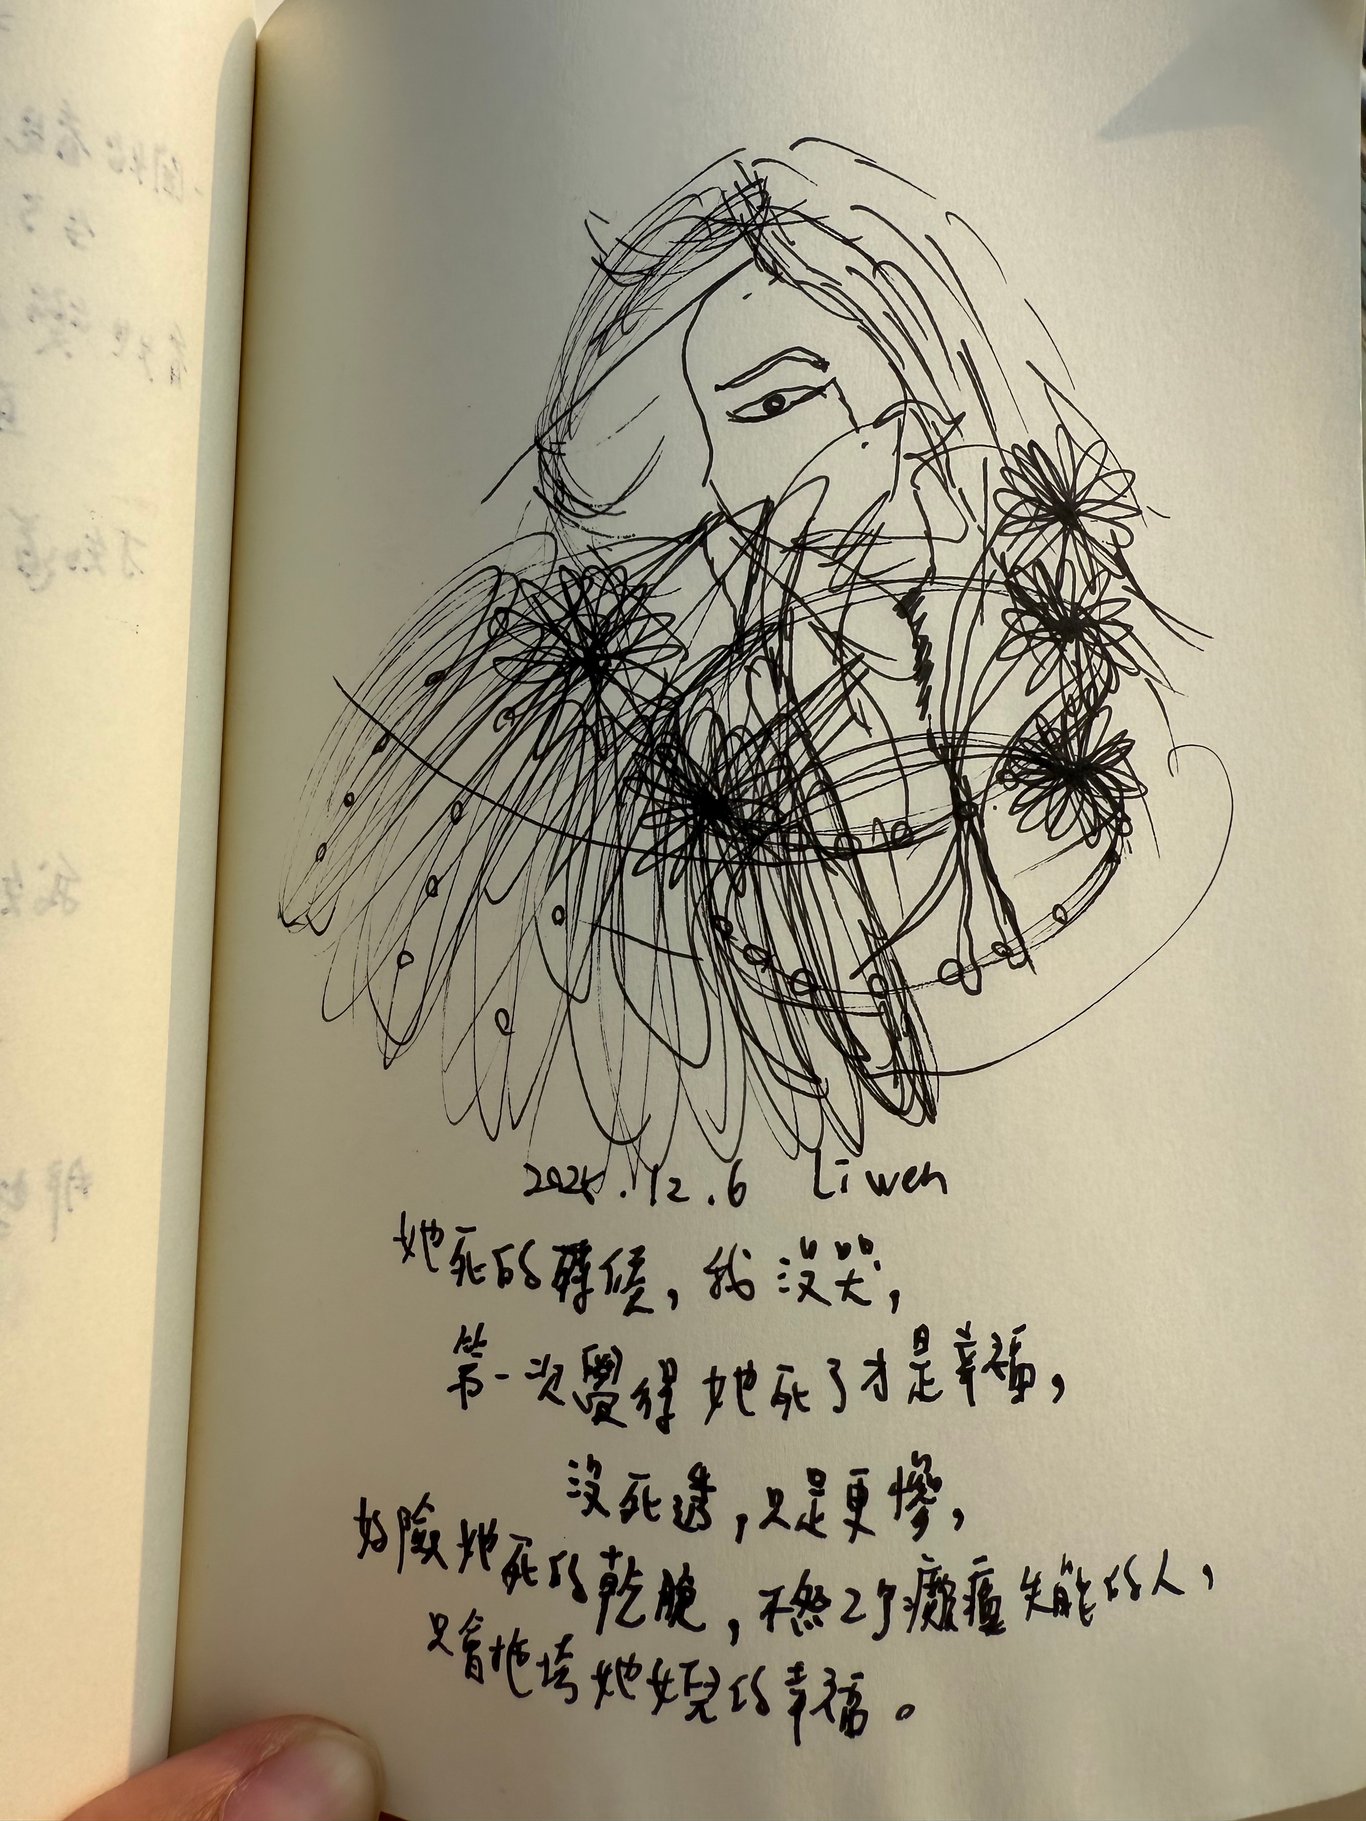 2025.12.6 Liwen
她死的時候，我沒哭，
第一次覺得她死了才是幸福，
沒死透，只是更慘，
好險她死的乾脆，不然2个癱瘓失能的人，
只會拖垮她女兒的幸福。